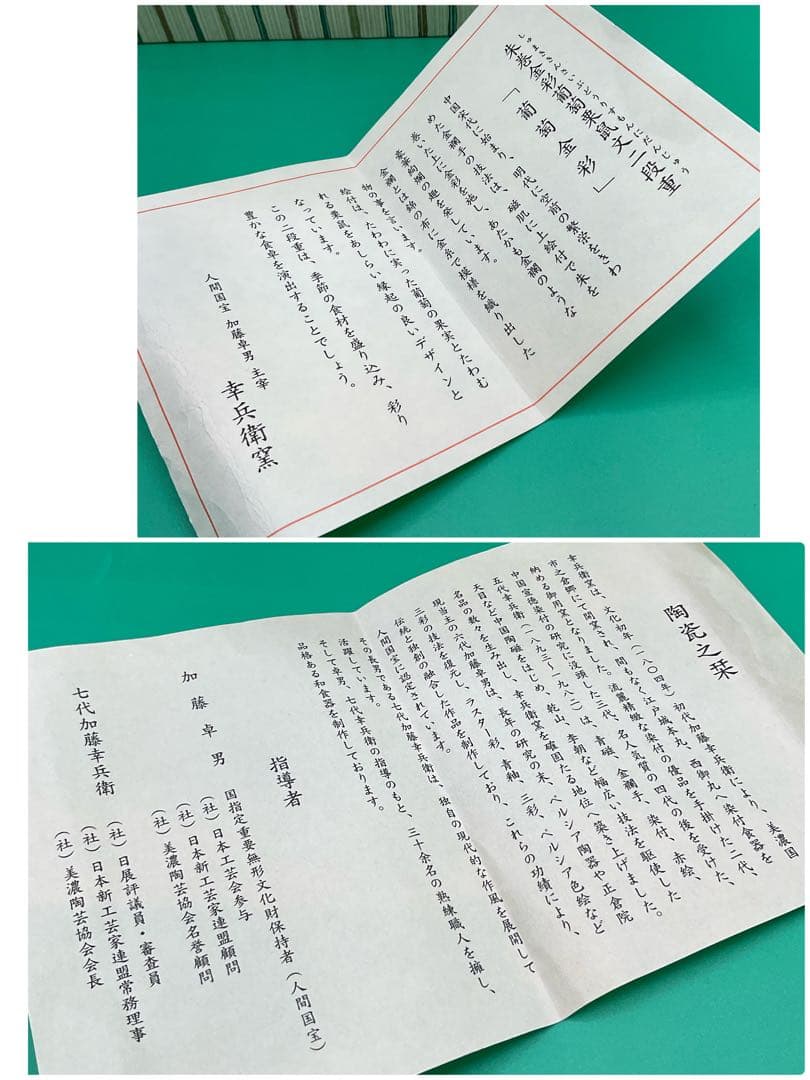 しゅまききんさいぶどうりすもんにだんじゅう
朱巻金彩葡萄栗鼠文二段重
「葡萄金彩」
中国宋代に始まり、明代に空前の繁栄をきわ
めた金襴手の技法は、磁肌に上絵付で朱を
巻いた上に金彩を施し、あたかも金襴のような
豪華絢爛の趣を発しています。
金襴とは錦の布に金糸で模様を織り出した
物の事を言います。
絵付は、たわわに実った葡萄の果実とたわむ
れる栗鼠をあしらい縁起の良いデザインと
なっています。
この二段重は、季節の食材を盛り込み、彩り
豊かな食卓を演出することでしょう。
人間国宝 加藤卓男 主宰
幸兵衛窯
陶瓷之栞
幸兵衛窯は、文化初年(一八〇四年)初代加藤幸兵衛により、美濃国
市之倉郷にて開窯され、間もなく江戸城本丸、西御丸へ染付食器を
納める御用窯となりました。流麗精緻な染付の優品を手掛けた二代、
中国宣徳染付の研究に没頭した三代、名人気質の四代の後を受けた、
五代幸兵衛(一八九三～一九八二)は、青磁、金襴手、染付、赤絵、
天目など中国陶磁をはじめ、乾山、李朝など幅広い技法を駆使した
名品の数々を生み出し、幸兵衛窯を確固たる地位へ築き上げました。
現当主の六代加藤卓男は、長年の研究の末、ペルシア陶器や正倉院
三彩の技法を復元し、ラスター彩、青釉、三彩、ペルシア色絵など
伝統と独創の融合した作品を制作しており、これらの功績により、
人間国宝に認定されています。
その長男である七代加藤幸兵衛は、独自の現代的な作風を展開して
活躍しています。
そして卓男、七代幸兵衛の指導のもと、三十余名の熟練職人を擁し、
品格ある和食器を制作しております。
指導者
加藤卓男
国指定重要無形文化財保持者(人間国宝)
(社)日本工芸会参与
(社)日本新工芸家連盟顧問
(社)美濃陶芸協会名誉顧問
七代加藤幸兵衛
(社)日展評議員・審査員
(社)日本新工芸家連盟常務理事
(社)美濃陶芸協会会長